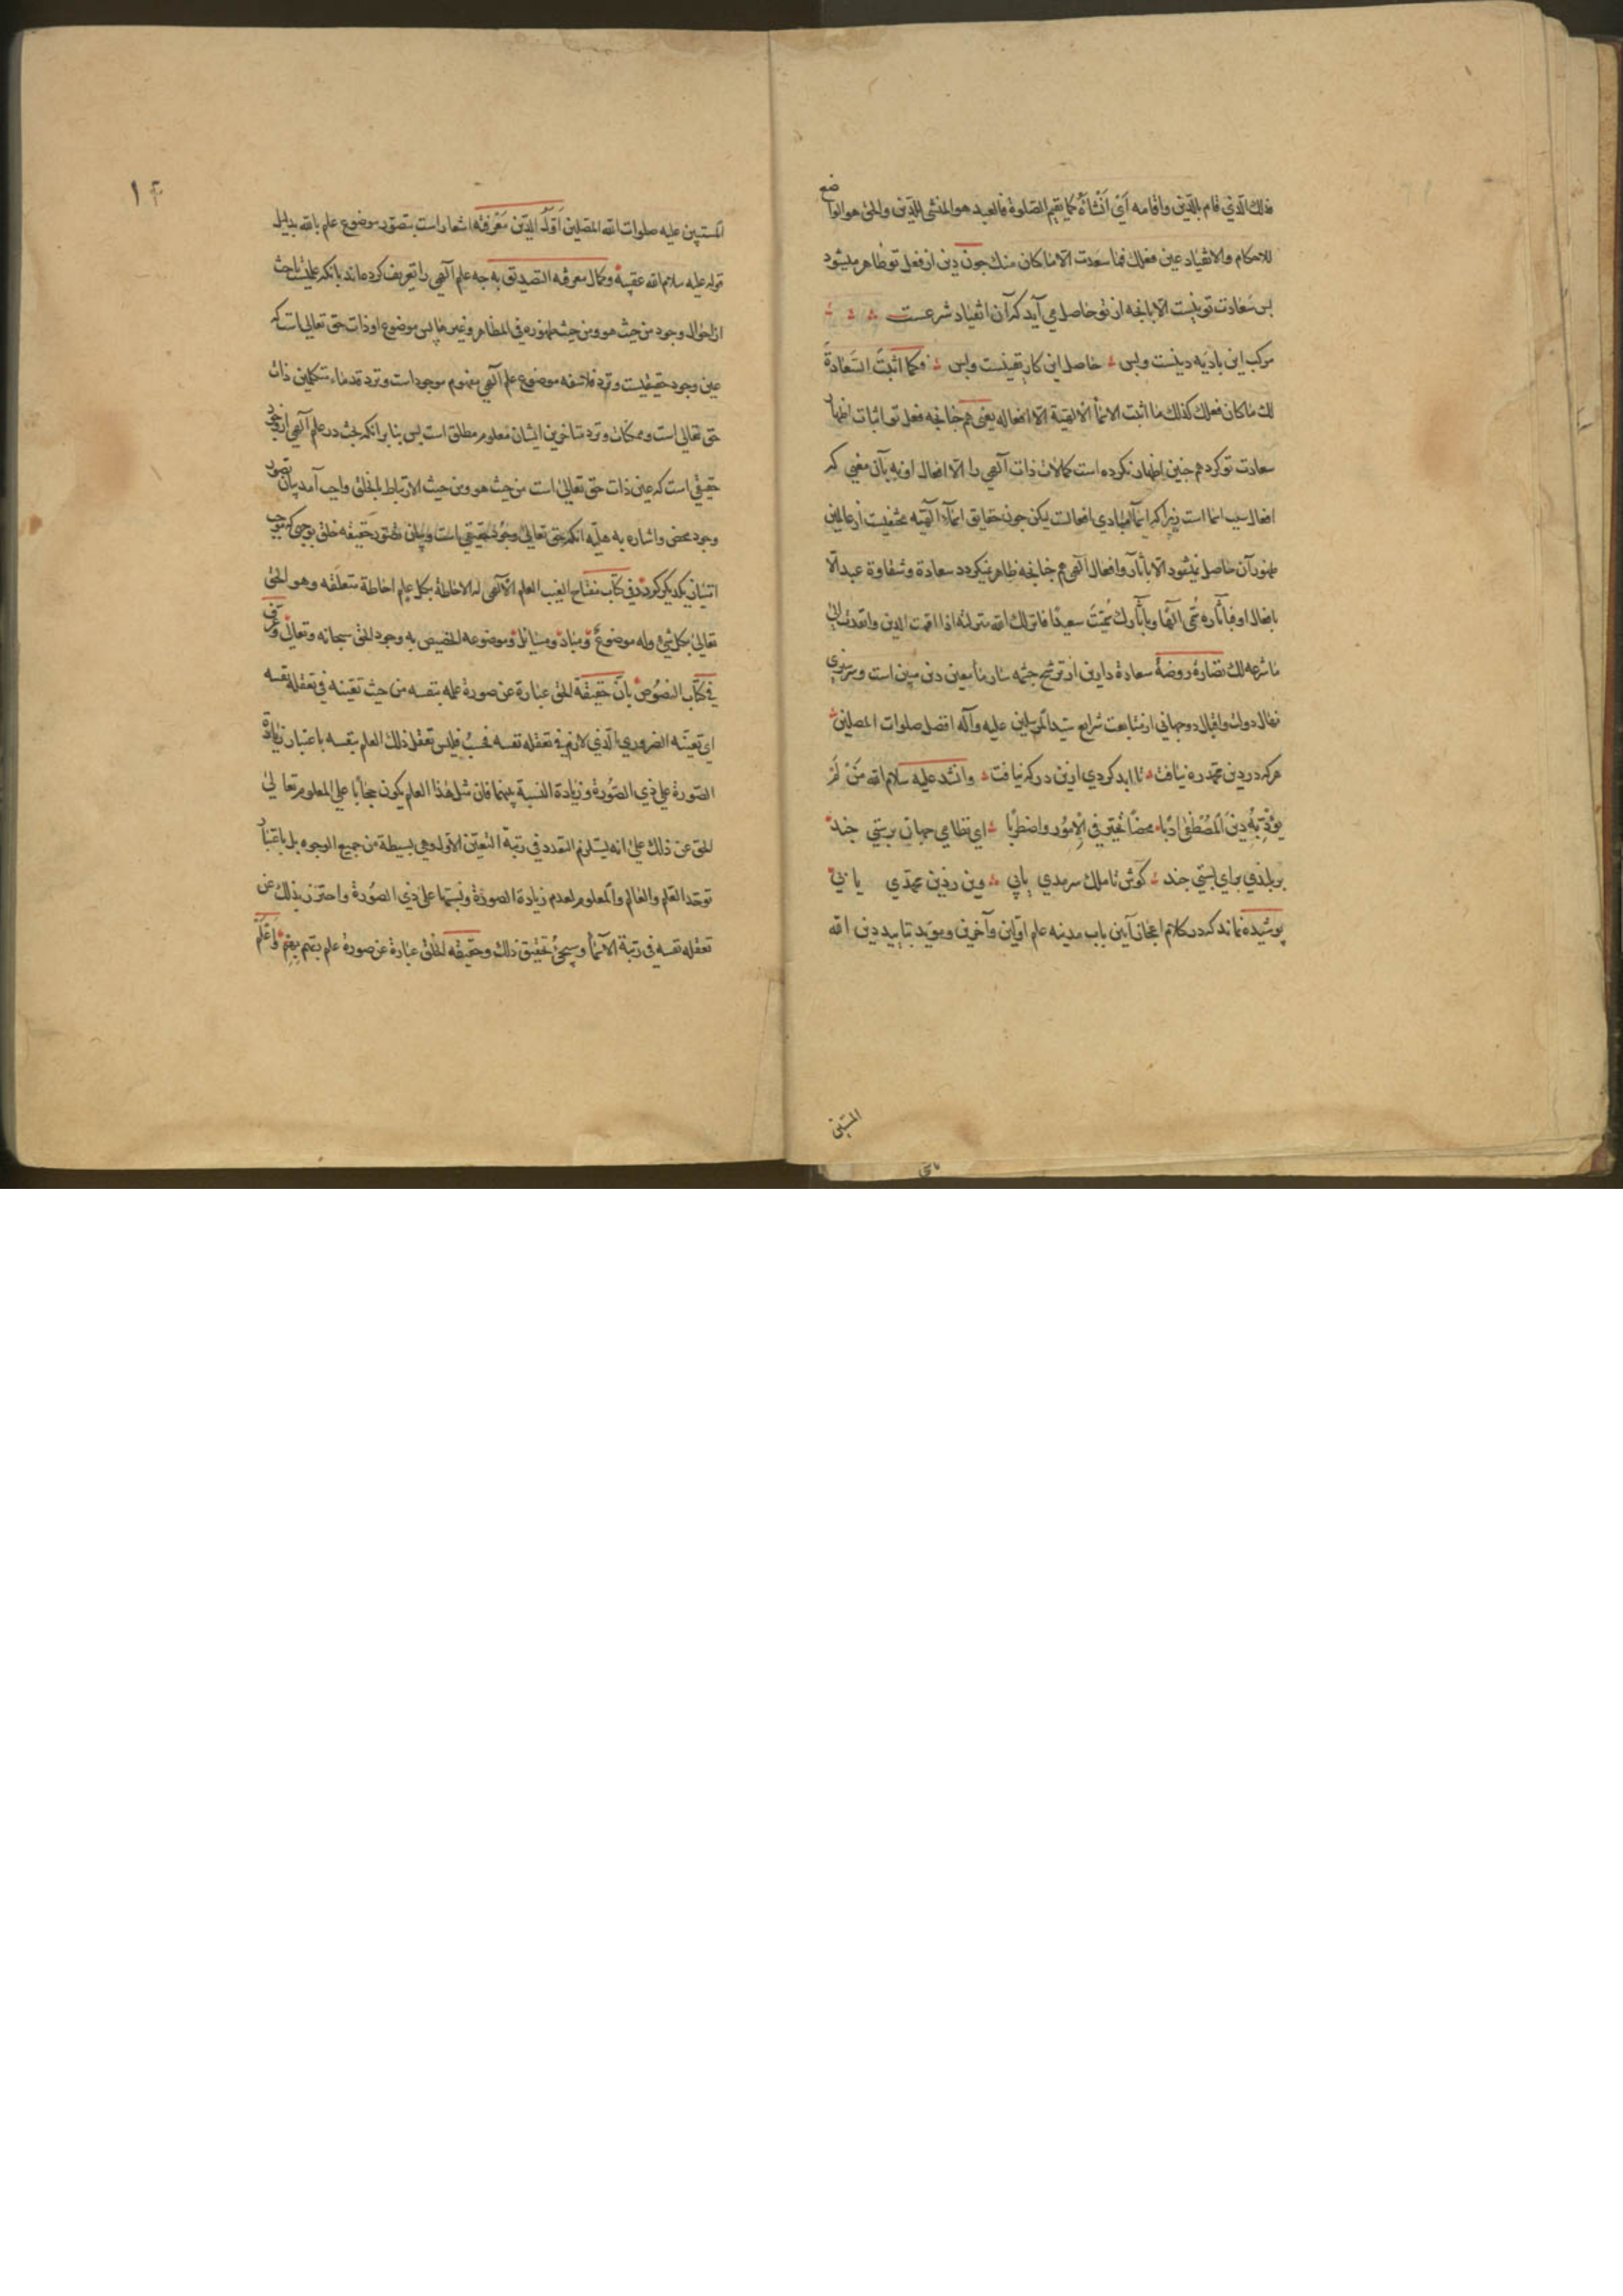 فذلك الّذي قام بالدّين واقامه اَي اَنْشأهُ كما يقيم الصّلوة فالعبد هو المنشی للدّين والحق هو الواضع
للاحكام والانقياد عين فعلك فما سَعدت الّا ما كان منك جون دين از فعل تو ظاهر ميشود
بس سَعادت تو نيست الّا بانجه از تو حاصل می آيد كه آن انقياد شرعست
مركب اين باديه دينست وبس حاصل اين كار يقينست وبس فكما اثبتَ السَّعادةَ
لك ما كان فعلك كذلك ما اثبت الاسمأ الالهية الّا افعاله يعنی هم جنانجه فعل تو اثبات اظهار
سعادت تو كرد هم جنين اظهار نكرده است كمالات ذات آلهی را الّا افعال او نه بآن معنی كه
افعال سبب اسما است زيرا كه اسمأ مبادی افعالست ليكن جون حقايق اسمآء آلهيّه مخفيست از عالمين
ظهور آن حاصل نيشود الّا بآثار وافعال آلهی هم جنانجه ظاهر نيكردد سعادة وشقاوة عبد الّا
بافعال او فبآثاره سُمّی آلهًا وبآثارك سُمّيتَ سعيدًا فانزلك الله منزلته اذا اقمت الدين وانقدت الی
ما شرعه لك نضارة روضهٔ سعادة دارين از ترشح جشمه سار مأ معين دين مبين است وسرسبزی
نهال دولت واقبال دوجهانی از متابعت شرايع سيّد المرسلين عليه وآله افضل صلوات المصلين
هركه در دين محمّد ره نيافت تا ابد كردی ازين دركه نيافت وانشد عليه سلام الله مَنْ لَمْ
يؤدّبْهُ دينُ المُصْطَفی ادبًا محضًا تحيّر في الامُور واضطربا ای نظامی جهان برستی جند
بر بلندی برای بستی جند كوش تا ملك سرمدی يابی وين ز دين محمّدی يابی
پوشيده نماند كه در كلام اعجاز آيين باب مدينه علم اوّلين وآخرين ومويّد بتاييد دين الله
المستبين
المستبين عليه صلوات الله المصلين اَوّلُ الدّين مَعْرفته اشعار است بتصوّر موضوع علم بالله بدليل
قوله عليه سلام الله عقيبه وكمال معرفه التصديق به جه علم آلهی را تعريف كرده‌اند بانكه علميست باحث
از احوال وجود من حيث هو ومن حيث ظهوره فی المظاهر وغيرها پس موضوع او ذات حق تعالی است كه
عين وجود حقيقيست ونزد فلاسفه موضوع علم آلهی مفهوم موجود است ونزد قدماء متكلمين ذات
حق تعالی است وممكنات ونزد متأخرين ايشان معلوم مطلق است بس بنا برانكه بحث در علم آلهی از وجود
حقيقی است كه عين ذات حق تعالی است من حيث هو ومن حيث الارتباط بالخلق واجب آمد بيان تصور
وجود محض واشاره به هليّه انكه حق تعالی وجُود حقيقی است وبيان تصّور حقيقه خلق بوجهی كه موجب
امتياز يكديكر كردد وفی كتاب مفتاح الغيب العلم الآلهی له الاحاطة بكل علم احاطة متعلقه وهو الحق
تعالی بكل شیٔ وله موضوعٌ ومبادٍ ومسائل وموضوعه الخصيص به وجود الحق سبحانه وتعالی وعرّف
فی كتاب النصُوص بانّ حَقيقَة الحق عبارة عن صورة علمه بنفسه من حيث تعيّنه فی تعقله نفسه
ای تعيّنه الضروری الّذی لازم فی تعقله نفسه فحسبُ فليس تعقل ذلك العلم بنفسه باعتبار زيادة
الصّورة علی ذی الصّورة وزيادة النسبة بينهما فان مثل هذا العلم يكون حجابًا علی المعلوم تعالی
الحق عن ذلك علی انه يستلزم التعدد فی رتبة التعيّن الاوّل وهی بسيطة من جميع الوجوه بل باعتبار
توحّد العلم والعالم والمعلوم لعدم زيادة الصورة ونسبتها علی ذی الصّورة واحترز بذلك عن
تعقله نفسه فی رتبة الاسمأ وسيجیٔ تحقيق ذلك وحقيقه الخلق عبارة عن صورة علم ربّهم بهم واعلم